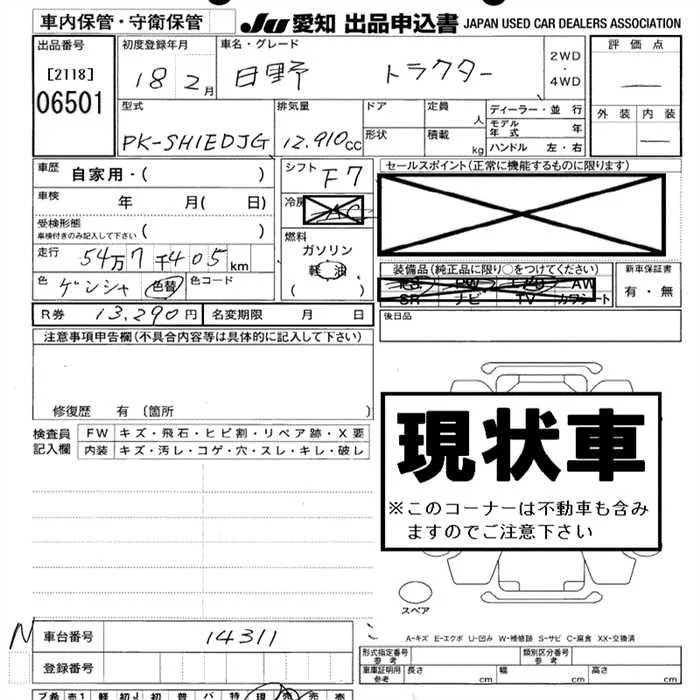 車内保管・守衛保管 JU 愛知 出品申込書 JAPAN USED CAR DEALERS ASSOCIATION
出品番号 初度登録年月 車名・グレード 2WD・4WD 評価点
[2118] 18 2月 日野 トラクター
06501 外装 内装
型式 排気量 ドア 定員 人 ディーラー・並行
モデル年式 年
PK-SH1EDJG 12,910cc 形状 積載 kg ハンドル 左・右
車歴 自家用・( ) シフト F7 セールスポイント(正常に機能するものに限ります)
車検 年 月( 日) 冷房 AC
受検形態
車検付きのみ記入して下さい ( ) 燃料
ガソリン
走行 54万7千405km 軽油
( )
装備品(純正品に限り○をつけてください) 新車保証書
色 ゲンシャ 色替 色コード PW AW 有・無
SR ナビ TV カワシート
R券 13,290円 名変期限 月 日 後日品
注意事項申告欄(不具合内容等は具体的に記入して下さい)
修復歴 有 (箇所 )
検査員記入欄 FW キズ・飛石・ヒビ割・リペア跡・X要
内装 キズ・汚レ・コゲ・穴・スレ・キレ・破レ
現状車
※このコーナーは不動車も含み
ますのでご注意下さい
スペア
N 車台番号 14311
A-キズ E-エクボ U-凹み W-補修跡 S-サビ C-腐食 XX-交換済
登録番号 形式指定番号 参考 類別区分番号 参考
車車証明用 参考 長さ cm 幅 cm 高さ cm